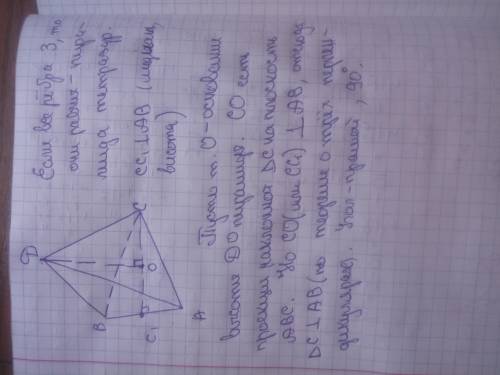 Если все рёбра 3, то
они равны - пира-
мида тетраэдр.
CC₁⊥AB (медиана,
высота)
D
B
C
C₁
O
A
Пусть т. O - основание
высоты DO пирамиды. CO есть
проекция наклонной DC на плоскость
ABC. Но CO (или CC₁) ⊥AB, отсюда
DC⊥AB (по теореме о трёх перпен-
дикулярах). Угол - прямой, 90°.